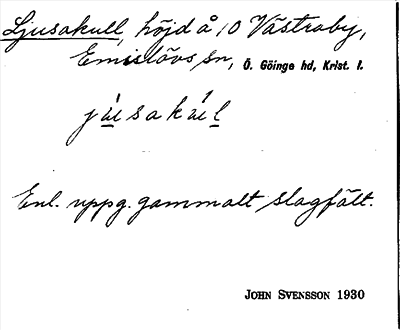 Ljusakull, höjd å 10 Västraby,
Emislövs sn, Ö. Göinge hd, Krist. l.
júsakúl
Enl. uppg. gammalt slagfält.
JOHN SVENSSON 1930